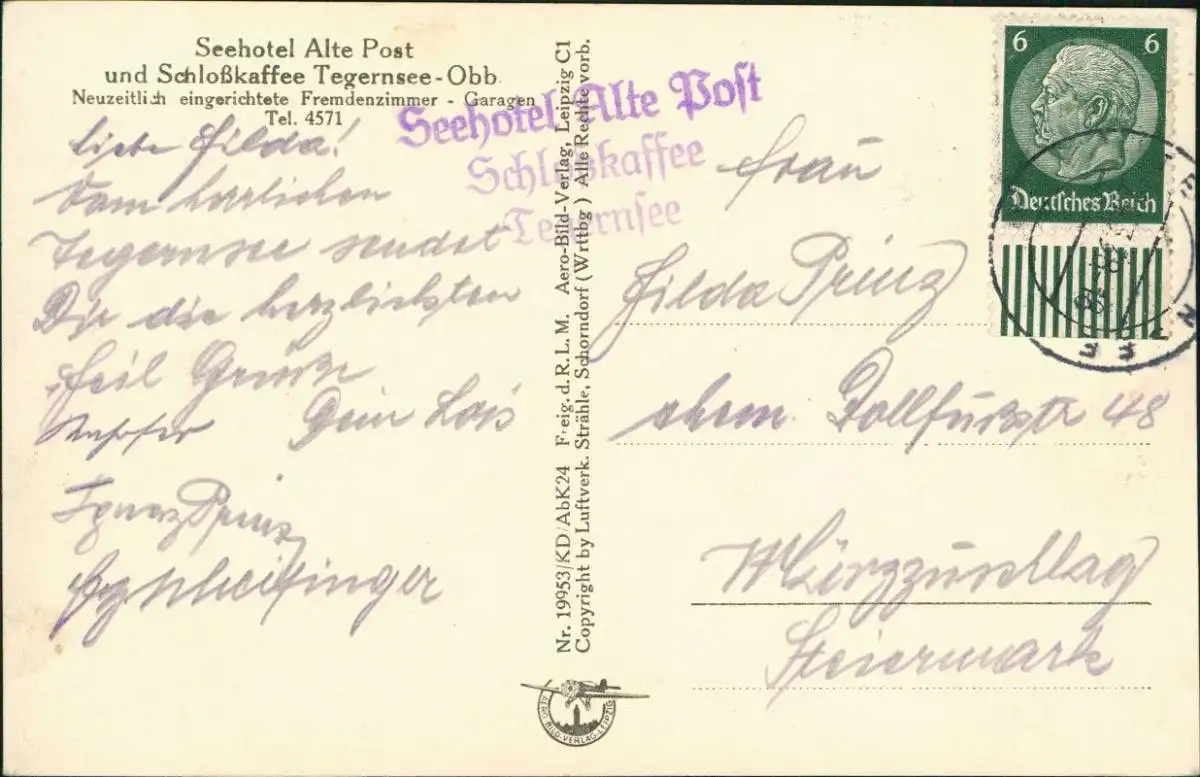 Seehotel Alte Post
und Schloßkaffee Tegernsee-Obb.
Neuzeitlich eingerichtete Fremdenzimmer - Garagen
Tel. 4571
Liebe Hilda!
Vom herrlichen
Tegernsee sendet
Dir die herzlichsten
Heil Grüße
Dein Lois
Ignaz Prinz
Seehotel Alte Post
Schloßkaffee
Tegernsee
Nr. 19953/KD/AbK24 Freig. d. R. L. M. Aero-Bild-Verlag, Leipzig C1
Copyright by Luftverk. Strähle, Schorndorf (Wrttbg) Alle Rechte vorb.
AERO-BILD-VERLAG-LEIPZIG
6 6
Deutsches Reich
Frau
Hilda Prinz
ehem. Dollfußstr 48
Mürzzuschlag
Steiermark